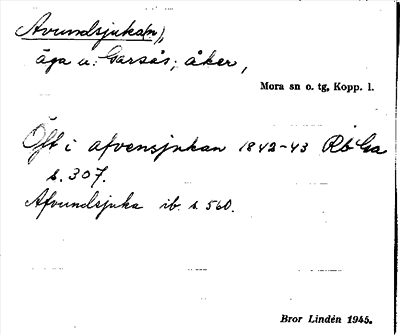 Avundsjuka(n),
äga u. Garsås; åker,
Mora sn o. tg, Kopp. l.
Öft i afvensjukan 1842-43 Rb Ga
s. 307.
Afvundsjuka ib. s 560.
Bror Lindén 1945.